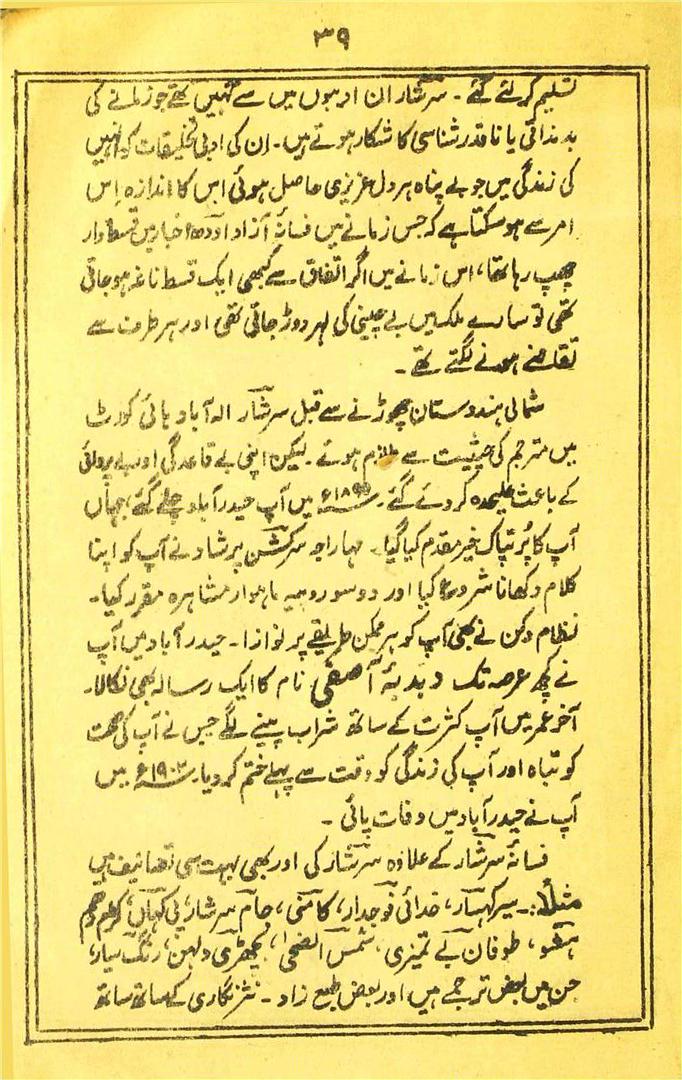 ۳۹
تسلیم کر لئے گئے ۔ سرشار ان ادیبوں میں سے نہیں تھے جو زمانے کی
بد مذاقی یا ناقدر شناسی کا شکار ہوتے ہیں ۔ ان کی ادبی تخلیقات کو انہیں
کی زندگی میں جو بے پناہ ہر دل عزیزی حاصل ہوئی اس کا اندازہ اِس
امر سے ہو سکتا ہے کہ جس زمانے میں فسانۂ آزاد اودھ اخبار میں قسط وار
چھپ رہا تھا، اس زمانے میں اگر اتفاق سے کبھی ایک قسط ناغہ ہو جاتی
تھی تو سارے ملک میں بے چینی کی لہر دوڑ جاتی تھی اور ہر طرف سے
تقاضے ہونے لگتے تھے ۔
شمالی ہندوستان چھوڑنے سے قبل سرشار الہ آباد ہائی کورٹ
میں مترجم کی حیثیت سے ملازم ہوئے ۔ لیکن اپنی بے قاعدگی اور بے پروائی
کے باعث علیحدہ کر دئے گئے ۔ ۱۸۹۵ء میں آپ حیدرآباد چلے گئے، جہاں
آپ کا پُر تپاک خیر مقدم کیا گیا ۔ مہاراجہ سرکشن پرشاد نے آپ کو اپنا
کلام دکھانا شروع کیا اور دو سو روپیہ ماہوار مشاہرہ مقرر کیا ۔
نظام دکن نے بھی آپ کو ہر ممکن طریقے پر نوازا ۔ حیدر آباد میں آپ
نے کچھ عرصہ تک دبدبۂ آصفی نام کا ایک رسالہ بھی نکالا ۔
آخر عمر میں آپ کثرت کے ساتھ شراب پینے لگے جس نے آپ کی صحت
کو تباہ اور آپ کی زندگی کو وقت سے پہلے ختم کر دیا ۔ ۱۹۰۲ء میں
آپ نے حیدر آباد میں وفات پائی ۔
فسانۂ سرشار کے علاوہ سرشار کی اور بھی بہت سی تصانیف ہیں
مثلاً:۔ سیر کہسار، خدائی فوجدار، کامنی، جام سرشار، پی کہاں، کڑم دھم
ہشو، طوفان بے تمیزی، شمس الضحیٰ، بچھڑی دلہن، رنگ سیار،
جن میں بعض ترجمے ہیں اور بعض طبع زاد ۔ نثر نگاری کے ساتھ ساتھ